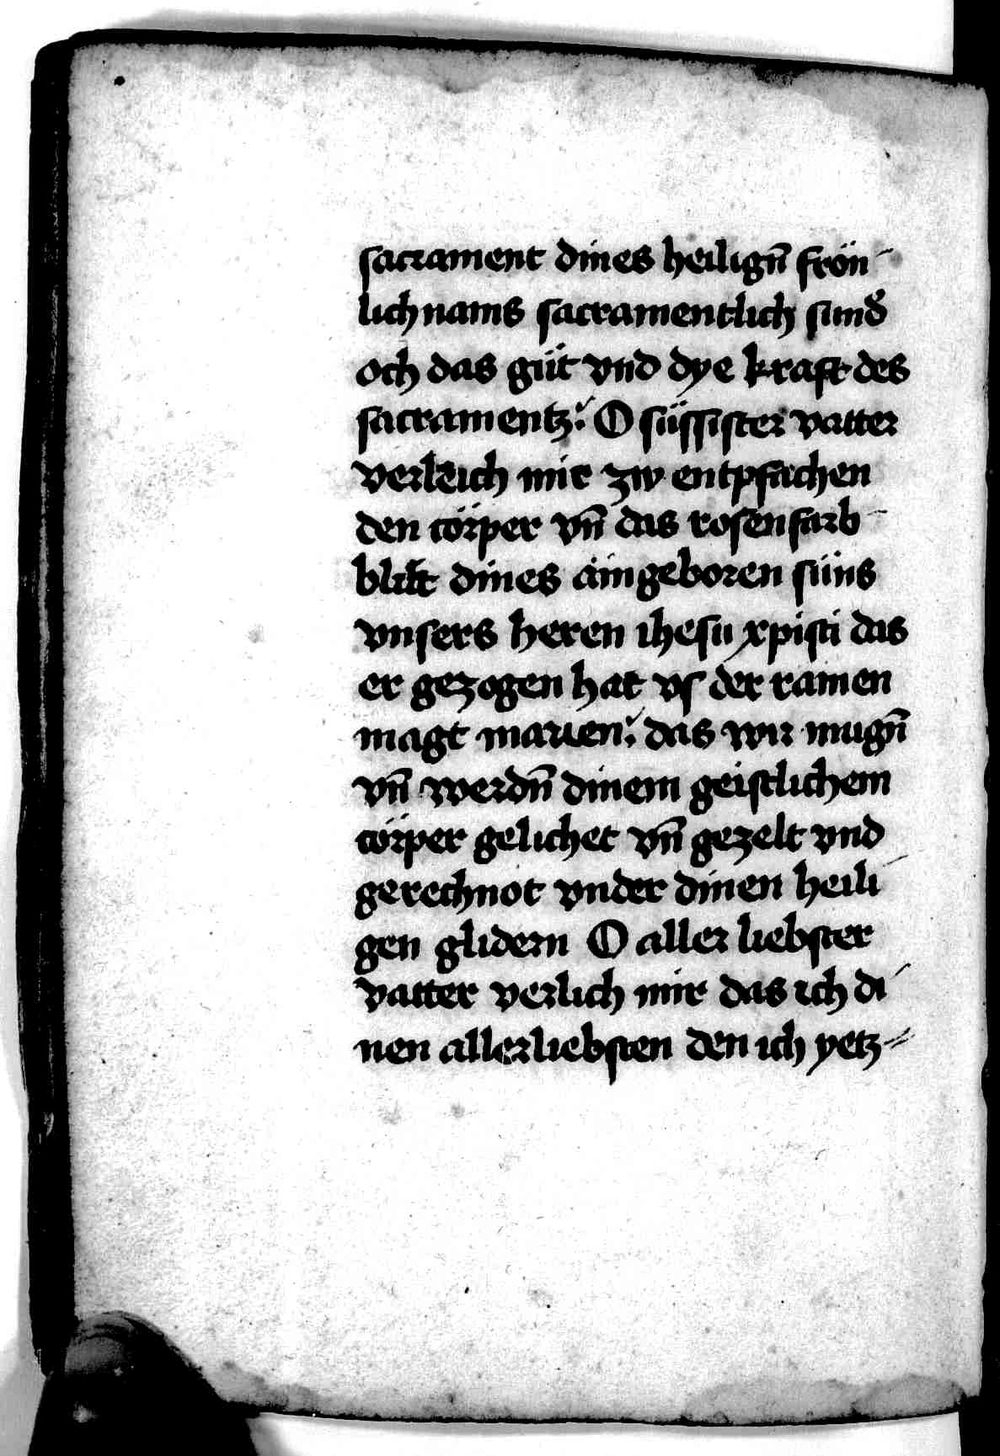 sacrament dines heiligñ frön
lichnams sacramentlich sund̾
och das güt vnd dye kraft des
sacramentz. O süssister vatter
verleich mir zw entpfachen
den cörper vñ das rosenfarb
blůt dines aingeboren süns
vnsers heren ihesu xpisti das
er gezogen hat vs der rainen
magt marien. das wir mugñ
vñ werdñ dinem geistlichem
cörper gelichet vñ gezelt vnd
gerechnot vnder dinen heili
gen glidern O aller liebster
vatter verlich mir das ich di
nen allerliebsten den ich yetz=